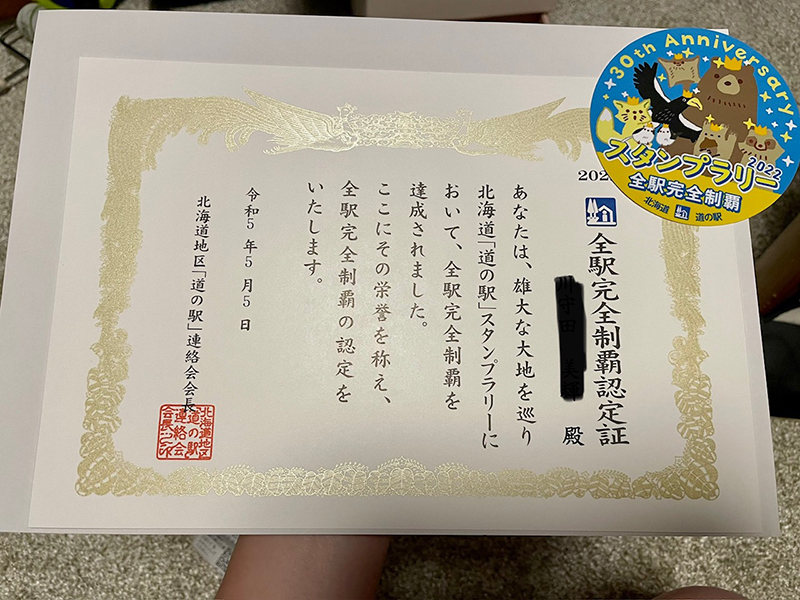 202
全駅完全制覇認定証
殿
あなたは、雄大な大地を巡り
北海道「道の駅」スタンプラリーに
おいて、全駅完全制覇を
達成されました。
ここにその栄誉を称え、
全駅完全制覇の認定を
いたします。
令和5年5月5日
北海道地区「道の駅」連絡会会長
北海道地区
道の駅
連絡会
会長之印
30th Anniversary
スタンプラリー
2022
全駅完全制覇
北海道 道の駅